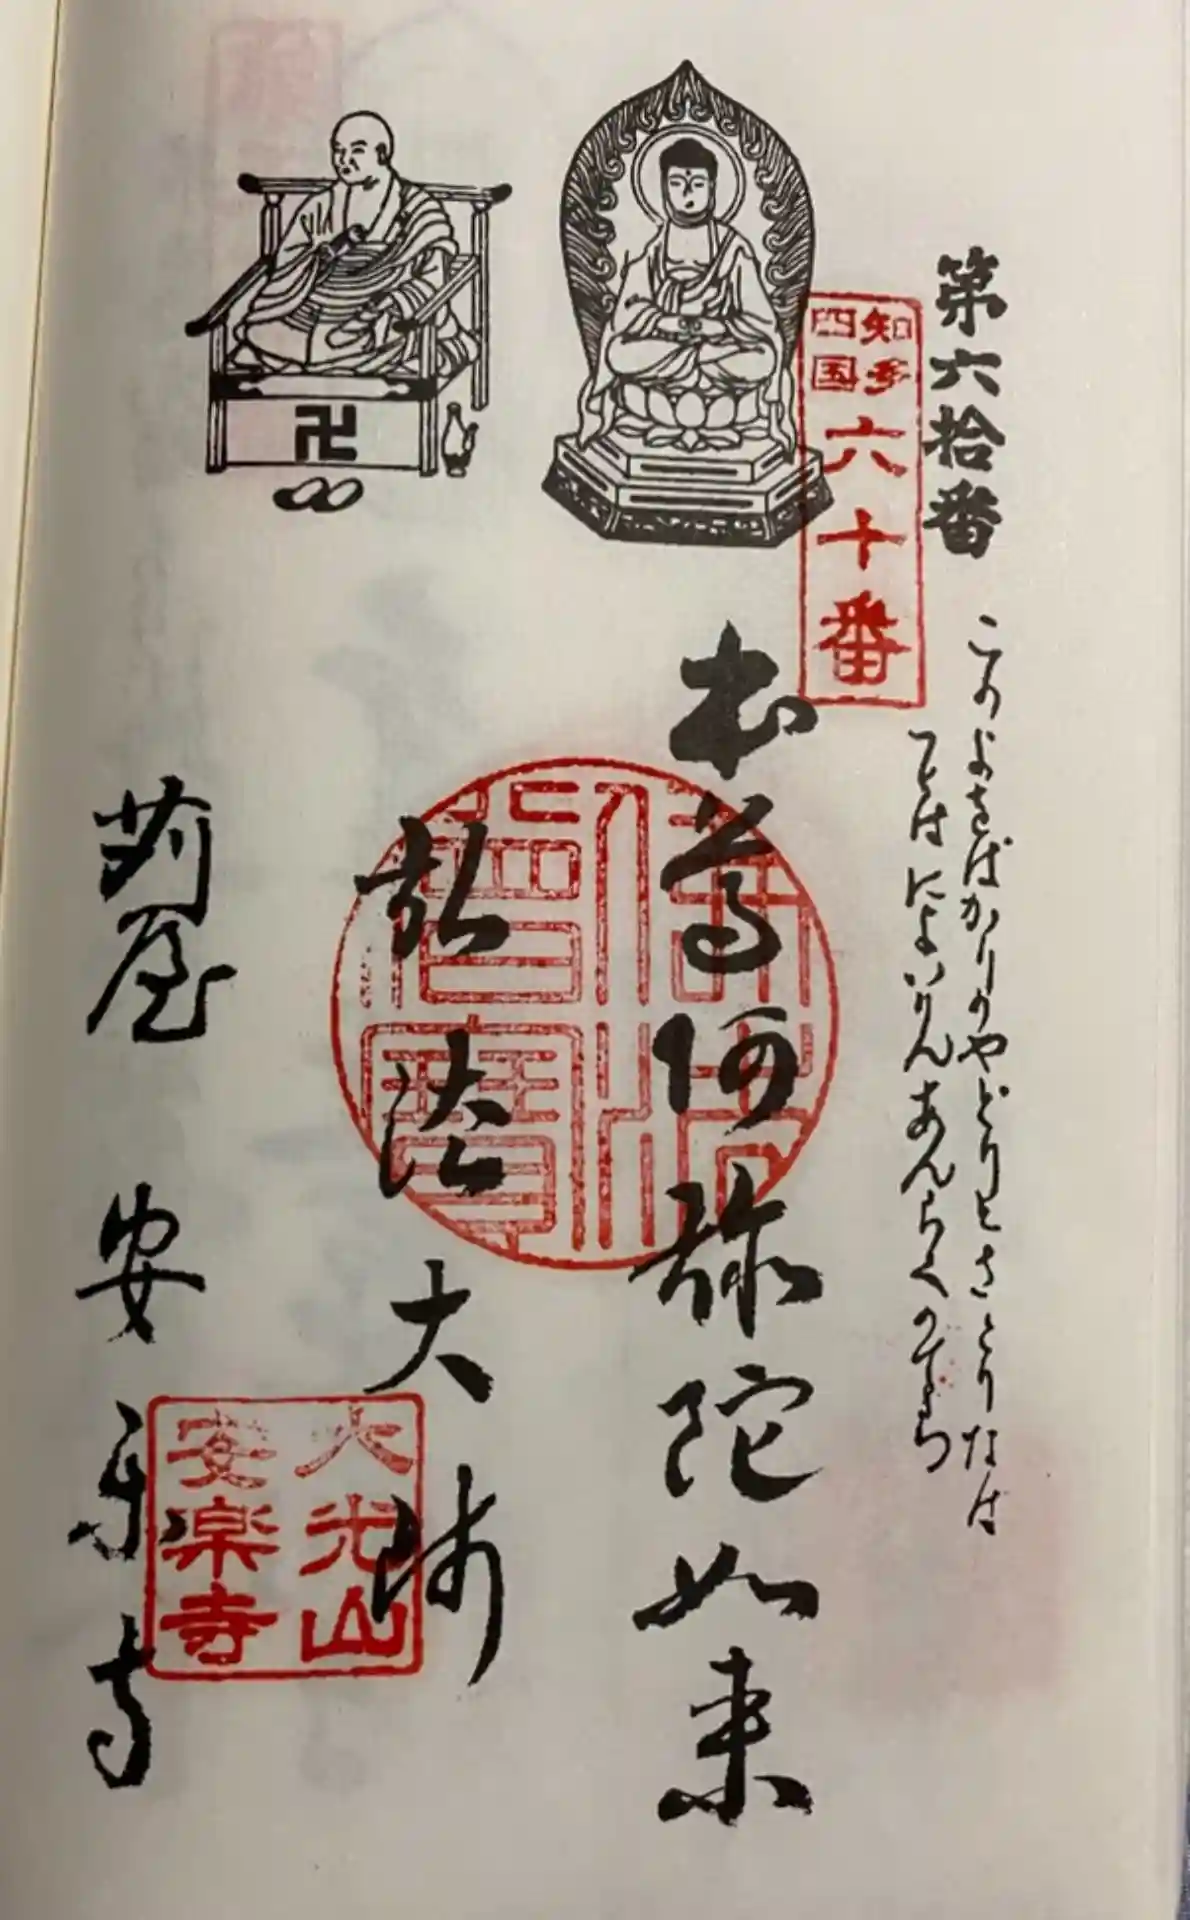 第六拾番
このよさばかりのやどりとさとりなは
ことはによいりんあんらくのてら
知多
四国
六十番
本尊阿弥陀如来
弘法大師
苅屋 安楽寺
大光山
安楽寺